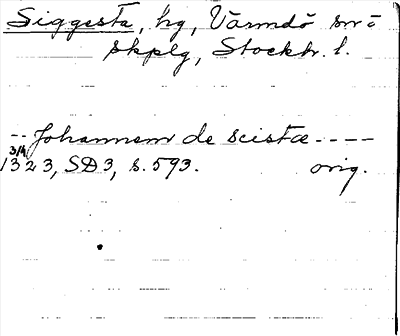 Siggesta, hg, Värmdö sn o
skplg, Stockh. l.
-- Johannem de scistæ ----
3/4
1323, SD3, s. 593. orig.